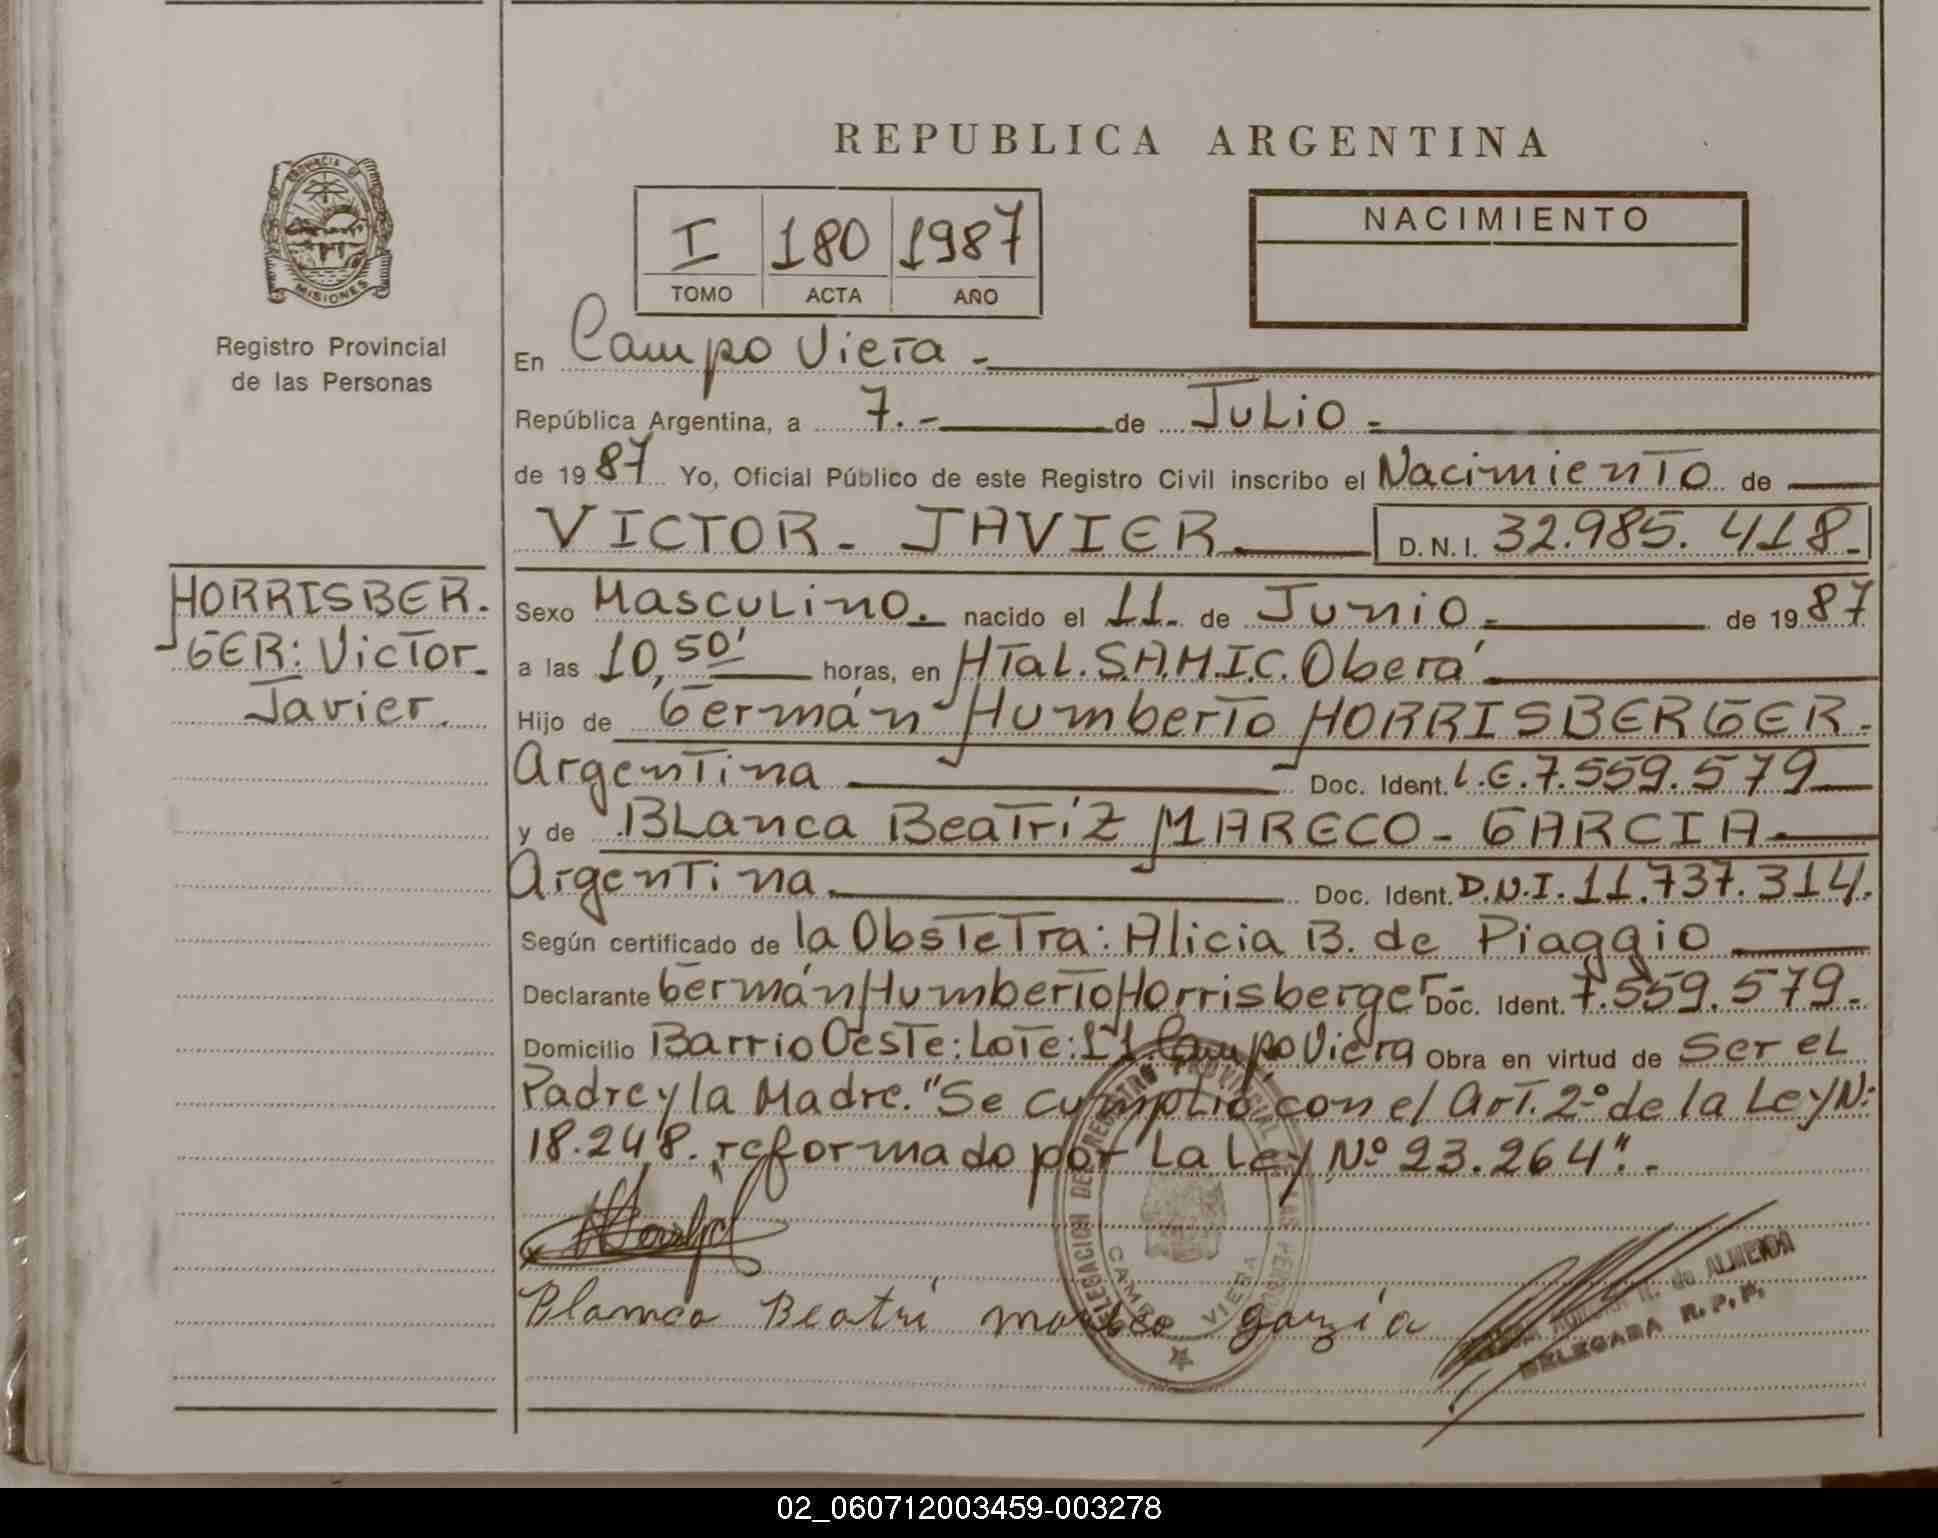 REPUBLICA ARGENTINA
PROVINCIA DE
MISIONES
Registro Provincial
de las Personas
I 180 1987
TOMO ACTA AÑO
NACIMIENTO
En Campo Viera.-
República Argentina, a 7.- de Julio.-
de 1987 Yo, Oficial Público de este Registro Civil inscribo el Nacimiento de
VICTOR- JAVIER D.N.I. 32.985.418.-
HORRISBER.
GER: Victor
Javier.
Sexo Masculino. nacido el 11. de Junio.- de 1987
a las 10,50' horas, en Htal. S.A.M.I.C. Oberá
Hijo de Germán Humberto HORRISBERGER.
Argentina Doc. Ident. L.E. 7.559.579
y de Blanca Beatríz MARECO-GARCIA
Argentina. Doc. Ident. D.N.I. 11.737.314.
Según certificado de la Obstetra: Alicia B. de Piaggio
Declarante Germán Humberto Horrisberger- Doc. Ident. 7.559.579.-
Domicilio Barrio Oeste: Lote: 11. Campo Viera Obra en virtud de Ser el
Padre y la Madre. "Se cumplió con el Art. 2º de la Ley N:
18.248. reformado por la Ley Nº 23.264".-
Blanca Beatri mareco garzia
DELEGACION DE REGISTRO PROVINCIAL DE LAS PERSONAS
CAMPO VIERA
de ALMEIDA
DELEGADA R.P.P.
02_060712003459-003278